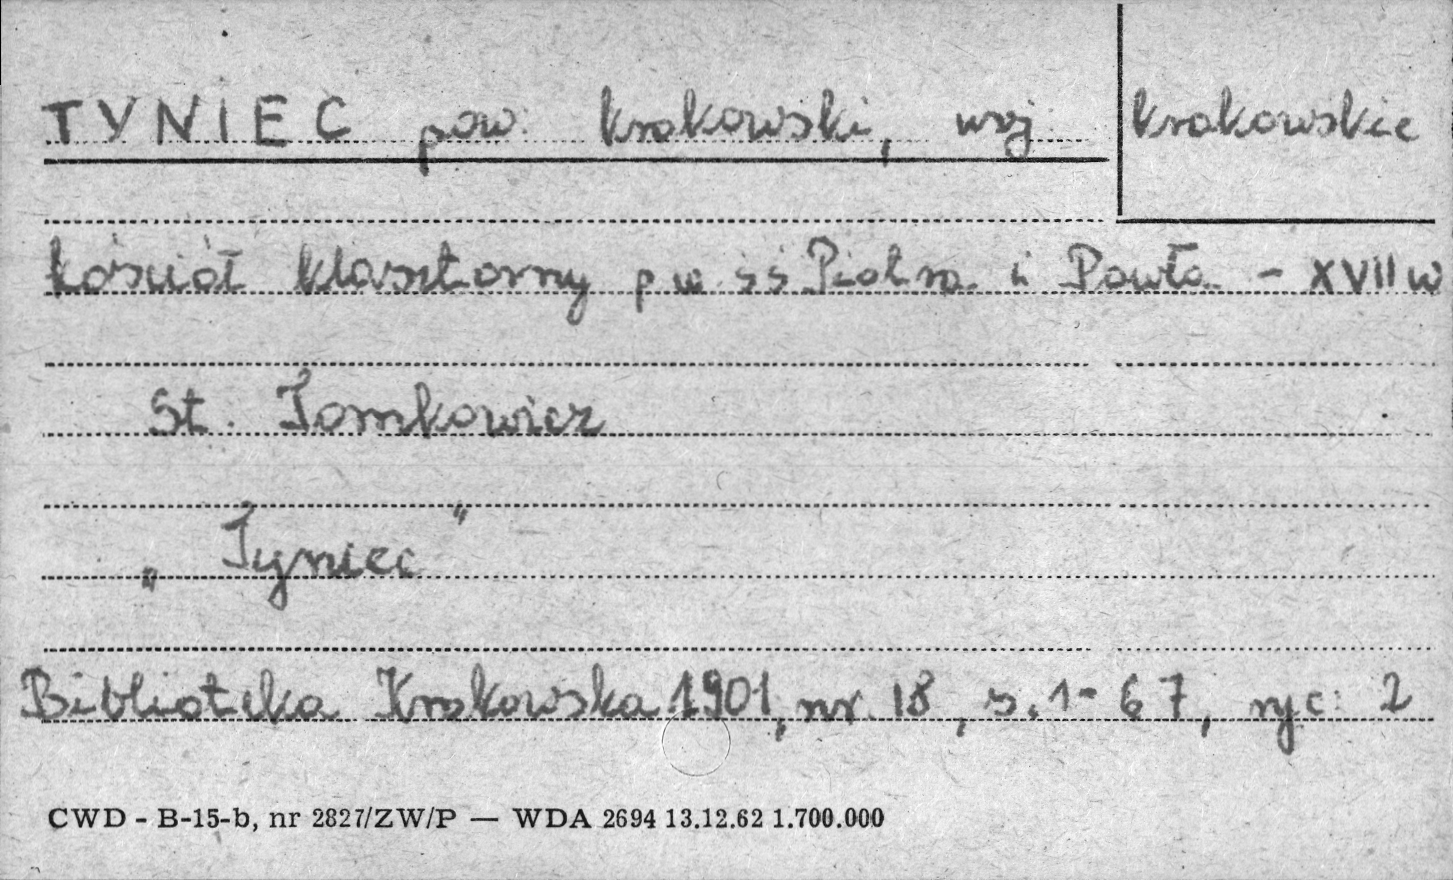 TYNIEC pow. krakowski, woj. krakowskie
kościół klasztorny p.w. śś Piotra i Pawła - XVII w
St. Tomkowicz
„Tyniec"
Biblioteka Krakowska 1901, nr. 18, s. 1-67, ryc. 2
CWD - B-15-b, nr 2827/ZW/P — WDA 2694 13.12.62 1.700.000